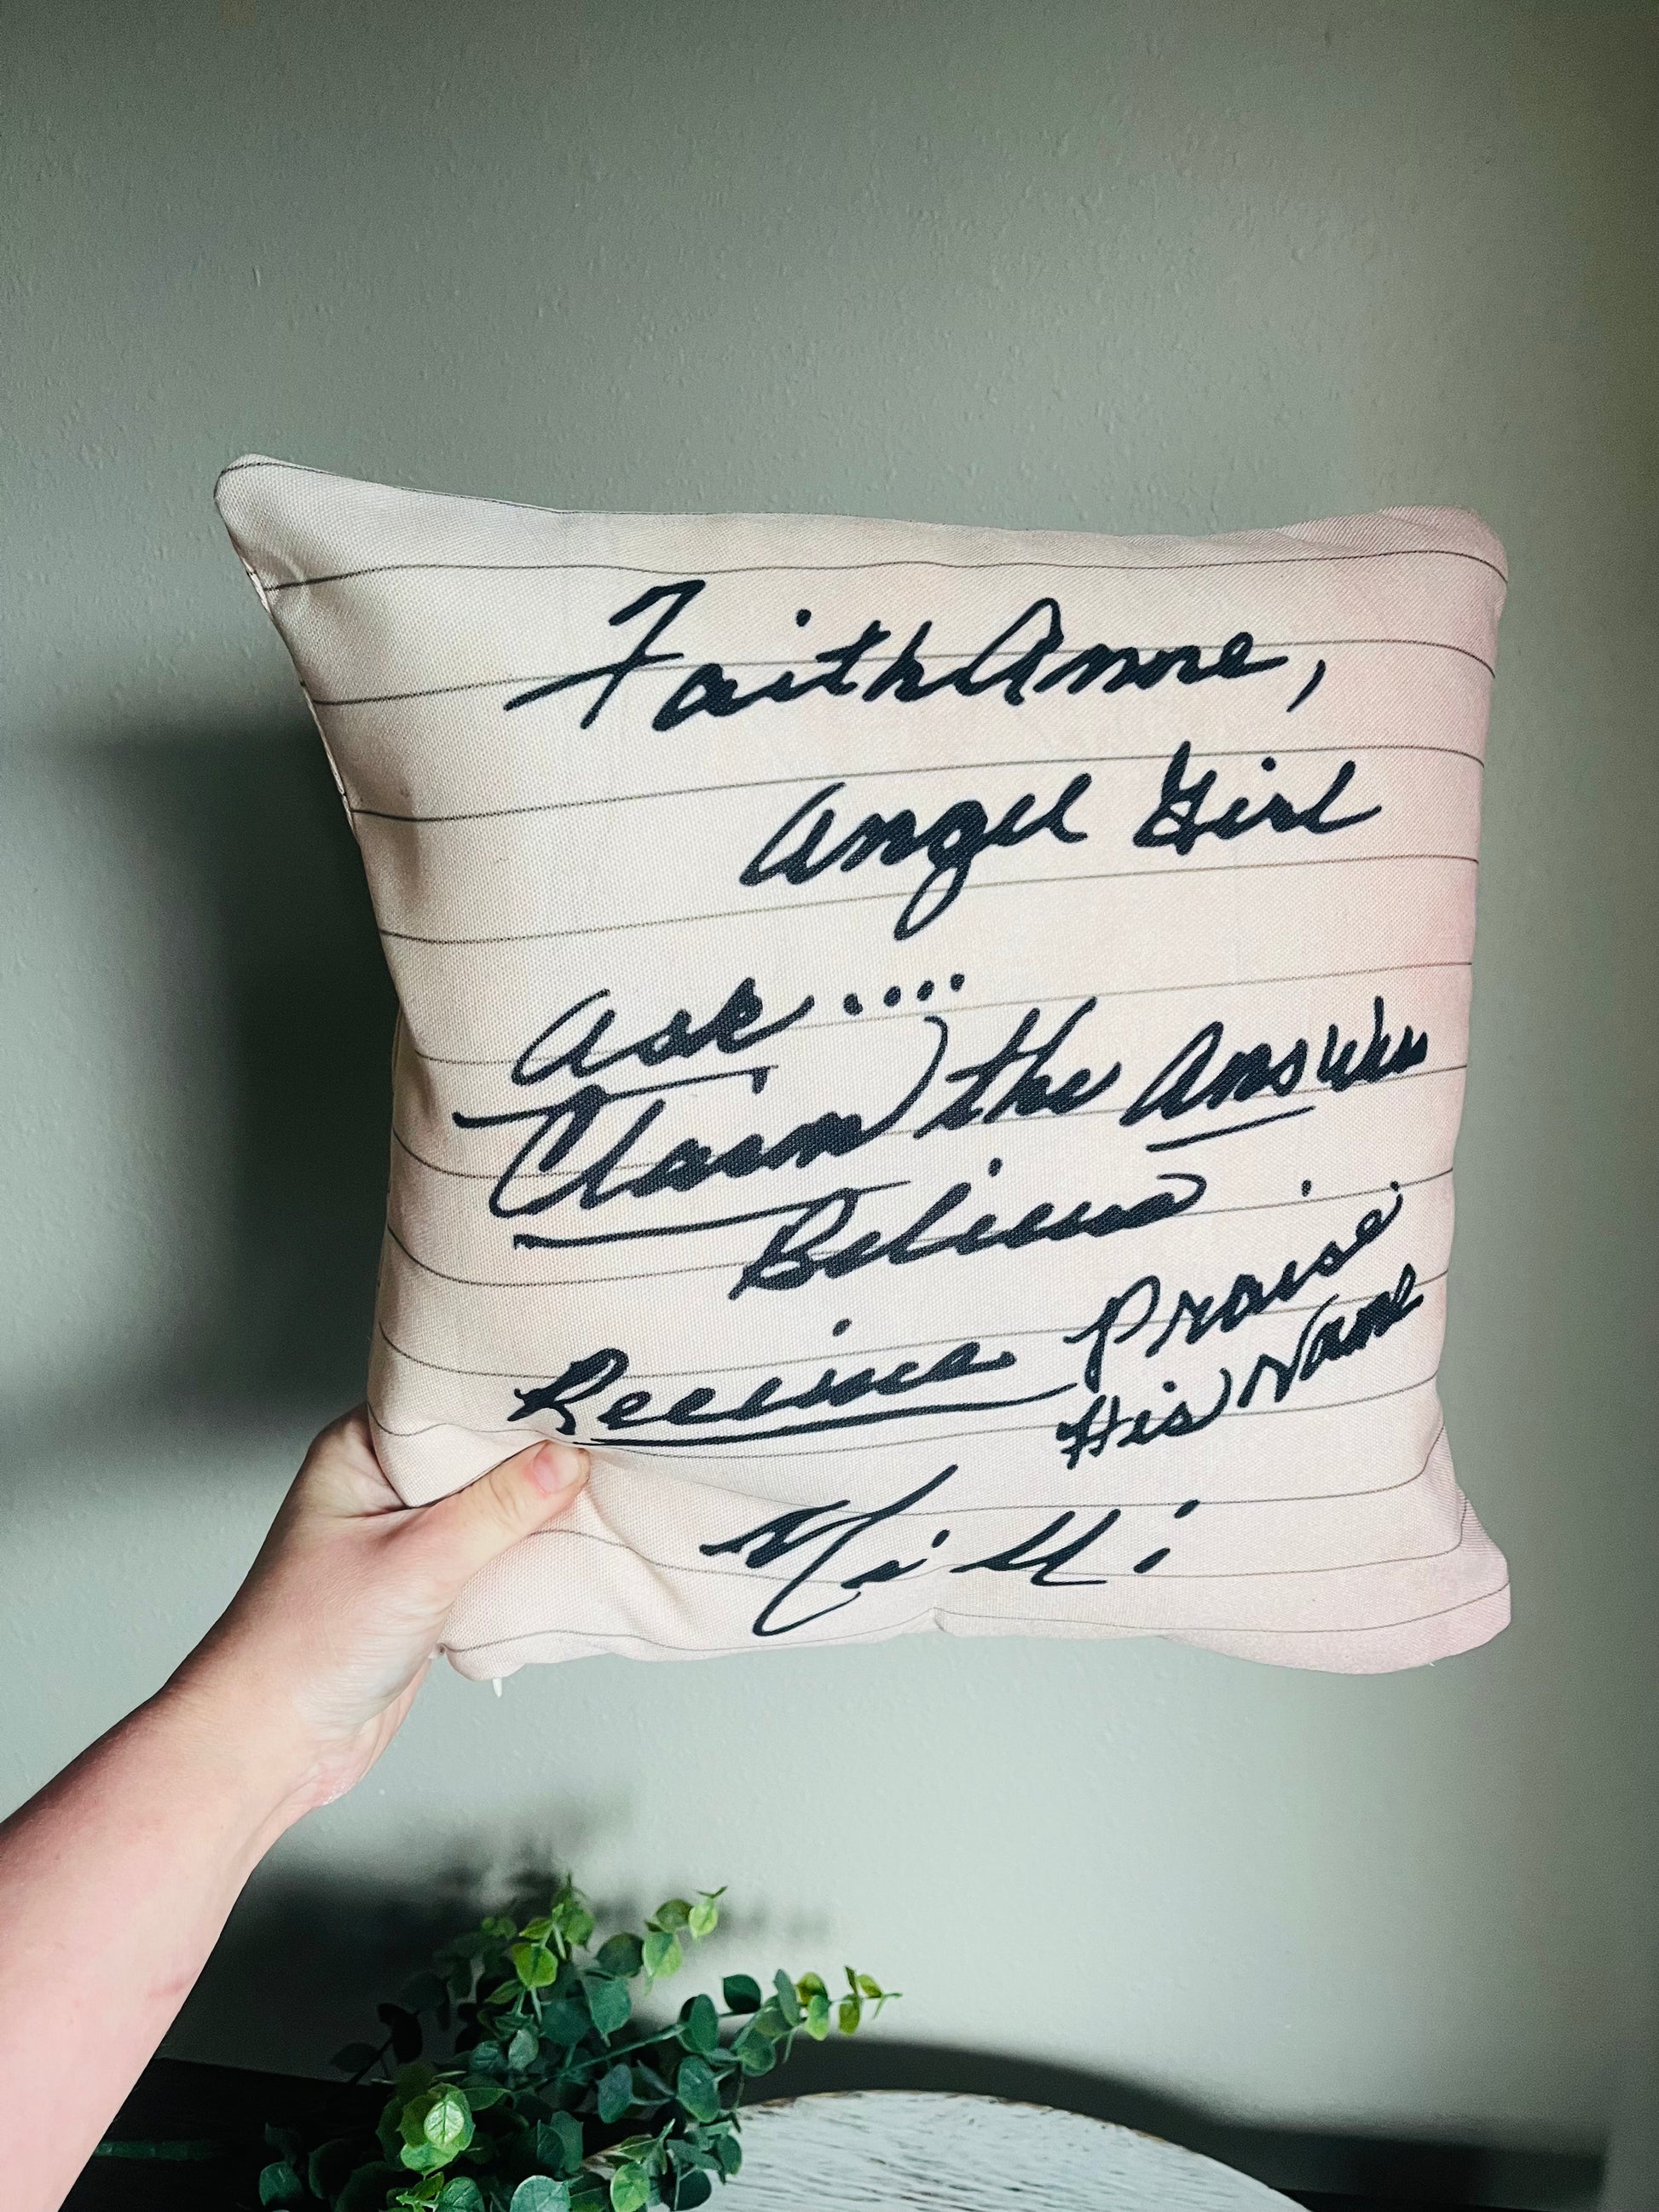 Faith Anne,
Angel Girl
Ask....
Claim the Answer
Believe
Receive Praise
His Name